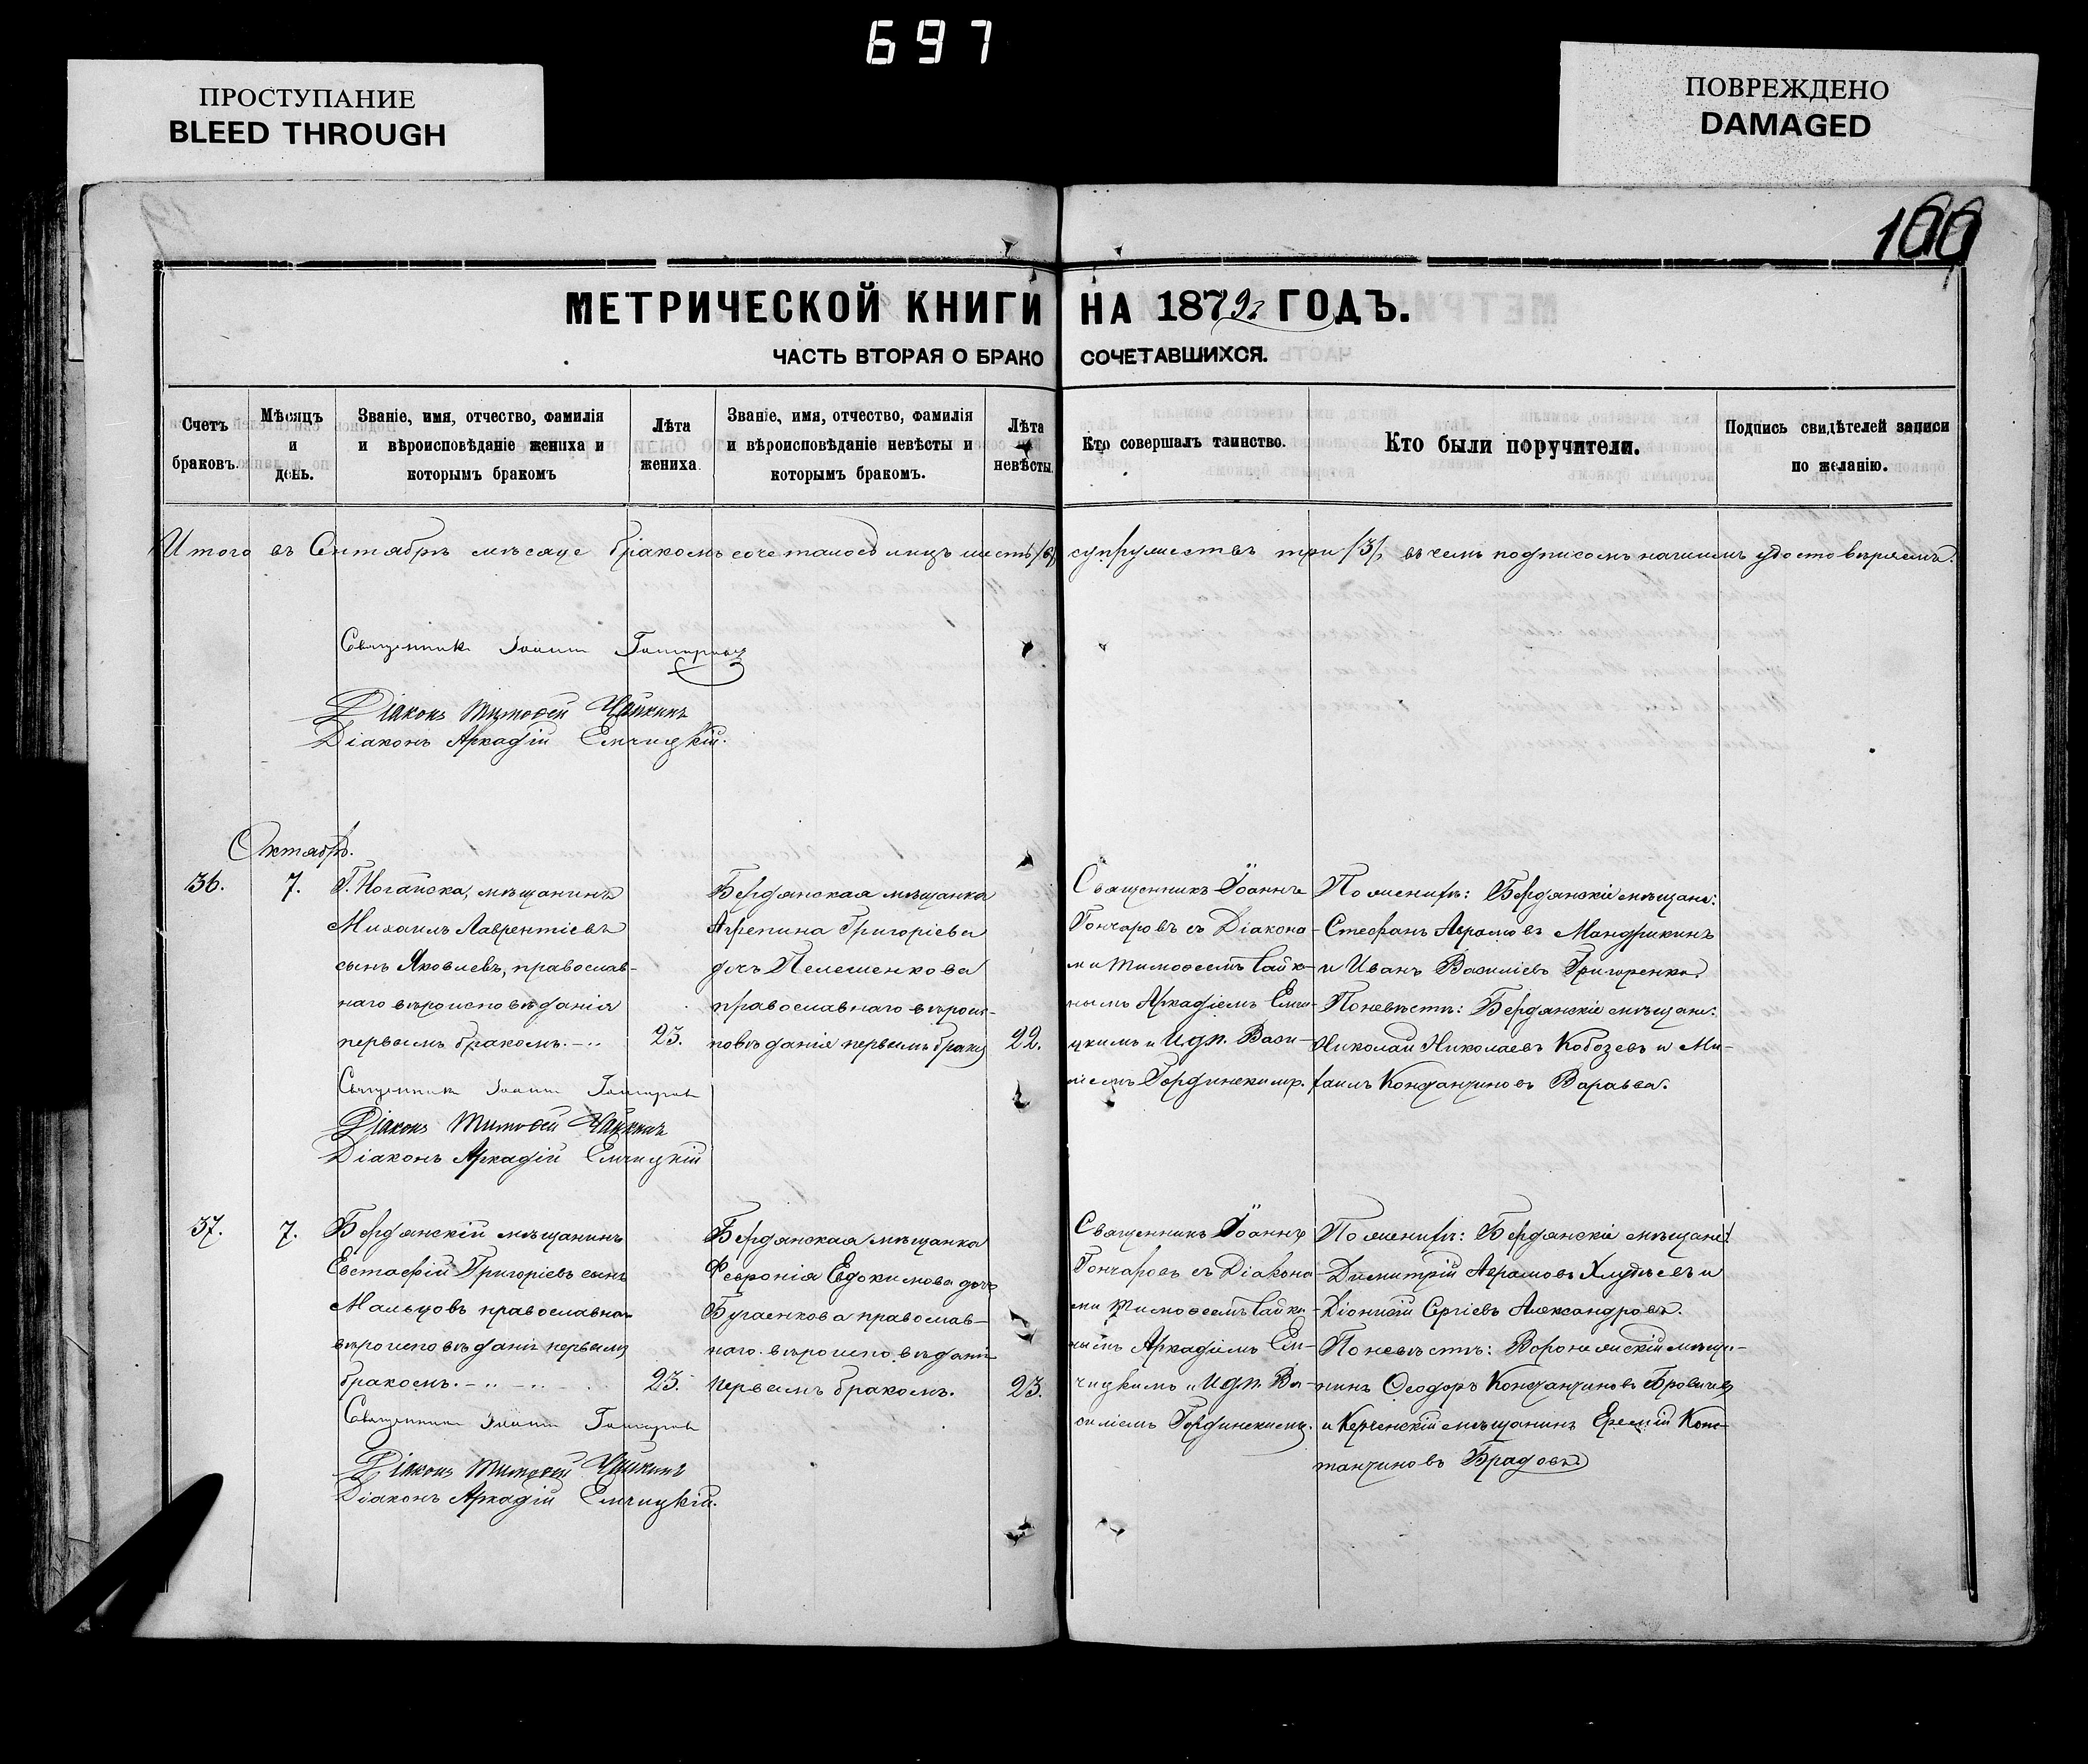 697
ПРОСТУПАНИЕ
BLEED THROUGH
ПОВРЕЖДЕНО
DAMAGED
100
МЕТРИЧЕСКОЙ КНИГИ НА 1879 г. ГОДЪ.
ЧАСТЬ ВТОРАЯ О БРАКО СОЧЕТАВШИХСЯ.
Счетъ
браковъ.
Мѣсяцъ
и
день.
Званіе, имя, отчество, фамилія
и вѣроисповѣданіе жениха и
которымъ бракомъ
Лѣта
жениха
Званіе, имя, отчество, фамилія
и вѣроисповѣданіе невѣсты и
которымъ бракомъ.
Лѣта
невѣсты
Кто совершалъ таинство.
Кто были поручители.
Подпись свидѣтелей записи
по желанію.
Итого въ Сентябрѣ мѣсяце бракомъ сочеталось лицъ шесть /6/ супружествъ три /3/, въ чемъ подписомъ нашимъ удостовѣряемъ.
Священникъ Іоаннъ Гончаровъ
Діаконъ Тимоѳей Чайкинъ
Діаконъ Аркадій Емчицкій.
Октябрь.
36.
7.
Г. Ногайска, мѣщанинъ
Михаилъ Лаврентіевъ
сынъ Яковлевъ, православ-
наго вѣроисповѣданія
первымъ бракомъ.
23.
Бердянская мѣщанка
Агрепина Григоріева
дочь Пелешенкова
православнаго вѣроис-
повѣданія первымъ браком
22.
Священникъ Іоаннъ
Гончаровъ съ Діакона-
ми Тимоѳеемъ Чайки-
нымъ Аркадіемъ Емчи-
цкимъ и И.д.п. Васи-
ліемъ Гординскимъ.
По женихѣ: Бердянскіе мѣщане:
Стефанъ Аврамовъ Мандрикинъ
и Иванъ Василіевъ Григоренко.
По невѣстѣ: Бердянскіе мѣщане:
Николай Николаевъ Кобозевъ и Ми-
хаилъ Константиновъ Варавва.
Священникъ Іоаннъ Гончаровъ
Діаконъ Тимоѳей Чайкинъ
Діаконъ Аркадій Емчицкій
37.
7.
Бердянскій мѣщанинъ
Евстафій Григоріевъ сынъ
Мальцовъ православнаго
вѣроисповѣданія первымъ
бракомъ.
23.
Бердянская мѣщанка
Февронія Евдокимова дочь
Бугаенкова православ-
наго вѣроисповѣданія
первымъ бракомъ.
23.
Священникъ Іоаннъ
Гончаровъ съ Діакона-
ми Тимоѳеемъ Чайки-
нымъ Аркадіемъ Ем-
чицкимъ и И.д.п. Ва-
силіемъ Гординскимъ.
По женихѣ: Бердянскіе мѣщане:
Димитрій Аврамовъ и
Діонисій Сергіевъ Александровъ.
По невѣстѣ: Воронежскій мѣща-
нинъ Ѳеодоръ Константиновъ
и Керченскій мѣщанинъ Еремій Конс-
тантиновъ Брадовъ
Священникъ Іоаннъ Гончаровъ
Діаконъ Тимоѳей Чайкинъ
Діаконъ Аркадій Емчицкій.